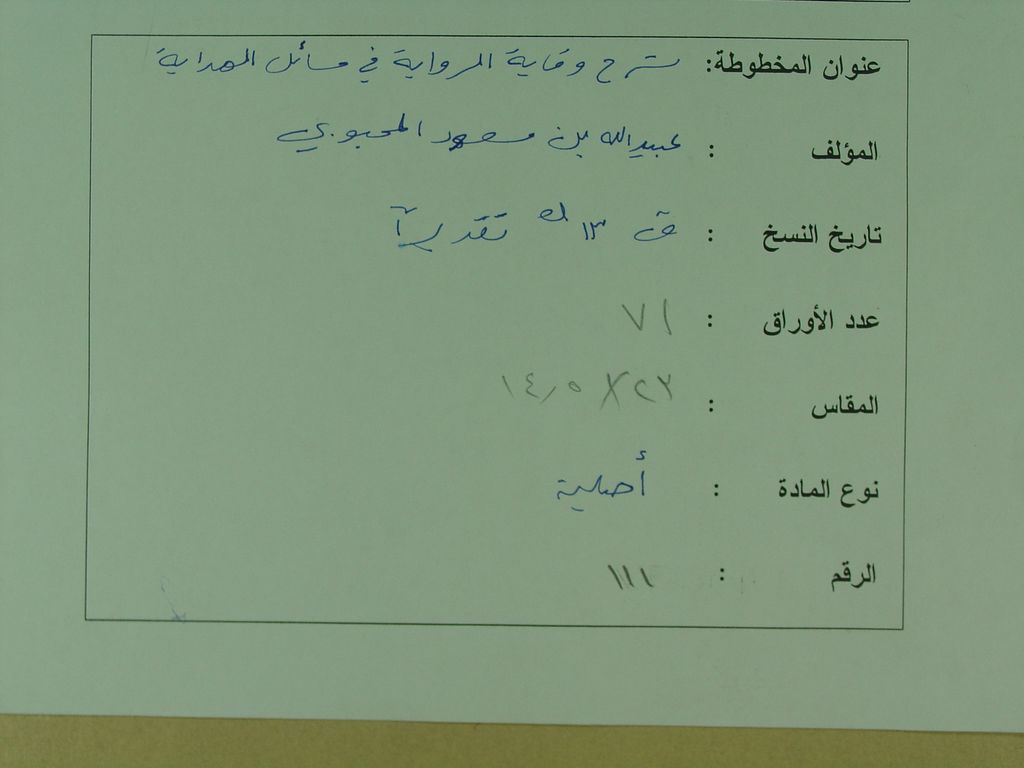 عنوان المخطوطة: شرح وقاية الرواية في مسائل الهداية
المؤلف : عبيدالله بن مسعود المحبوبي
تاريخ النسخ : ق ١٣ هـ تقديراً
عدد الأوراق : ٧١
المقاس : ٢٣ × ١٤٫٥
نوع المادة : أصلية
الرقم : ١١١